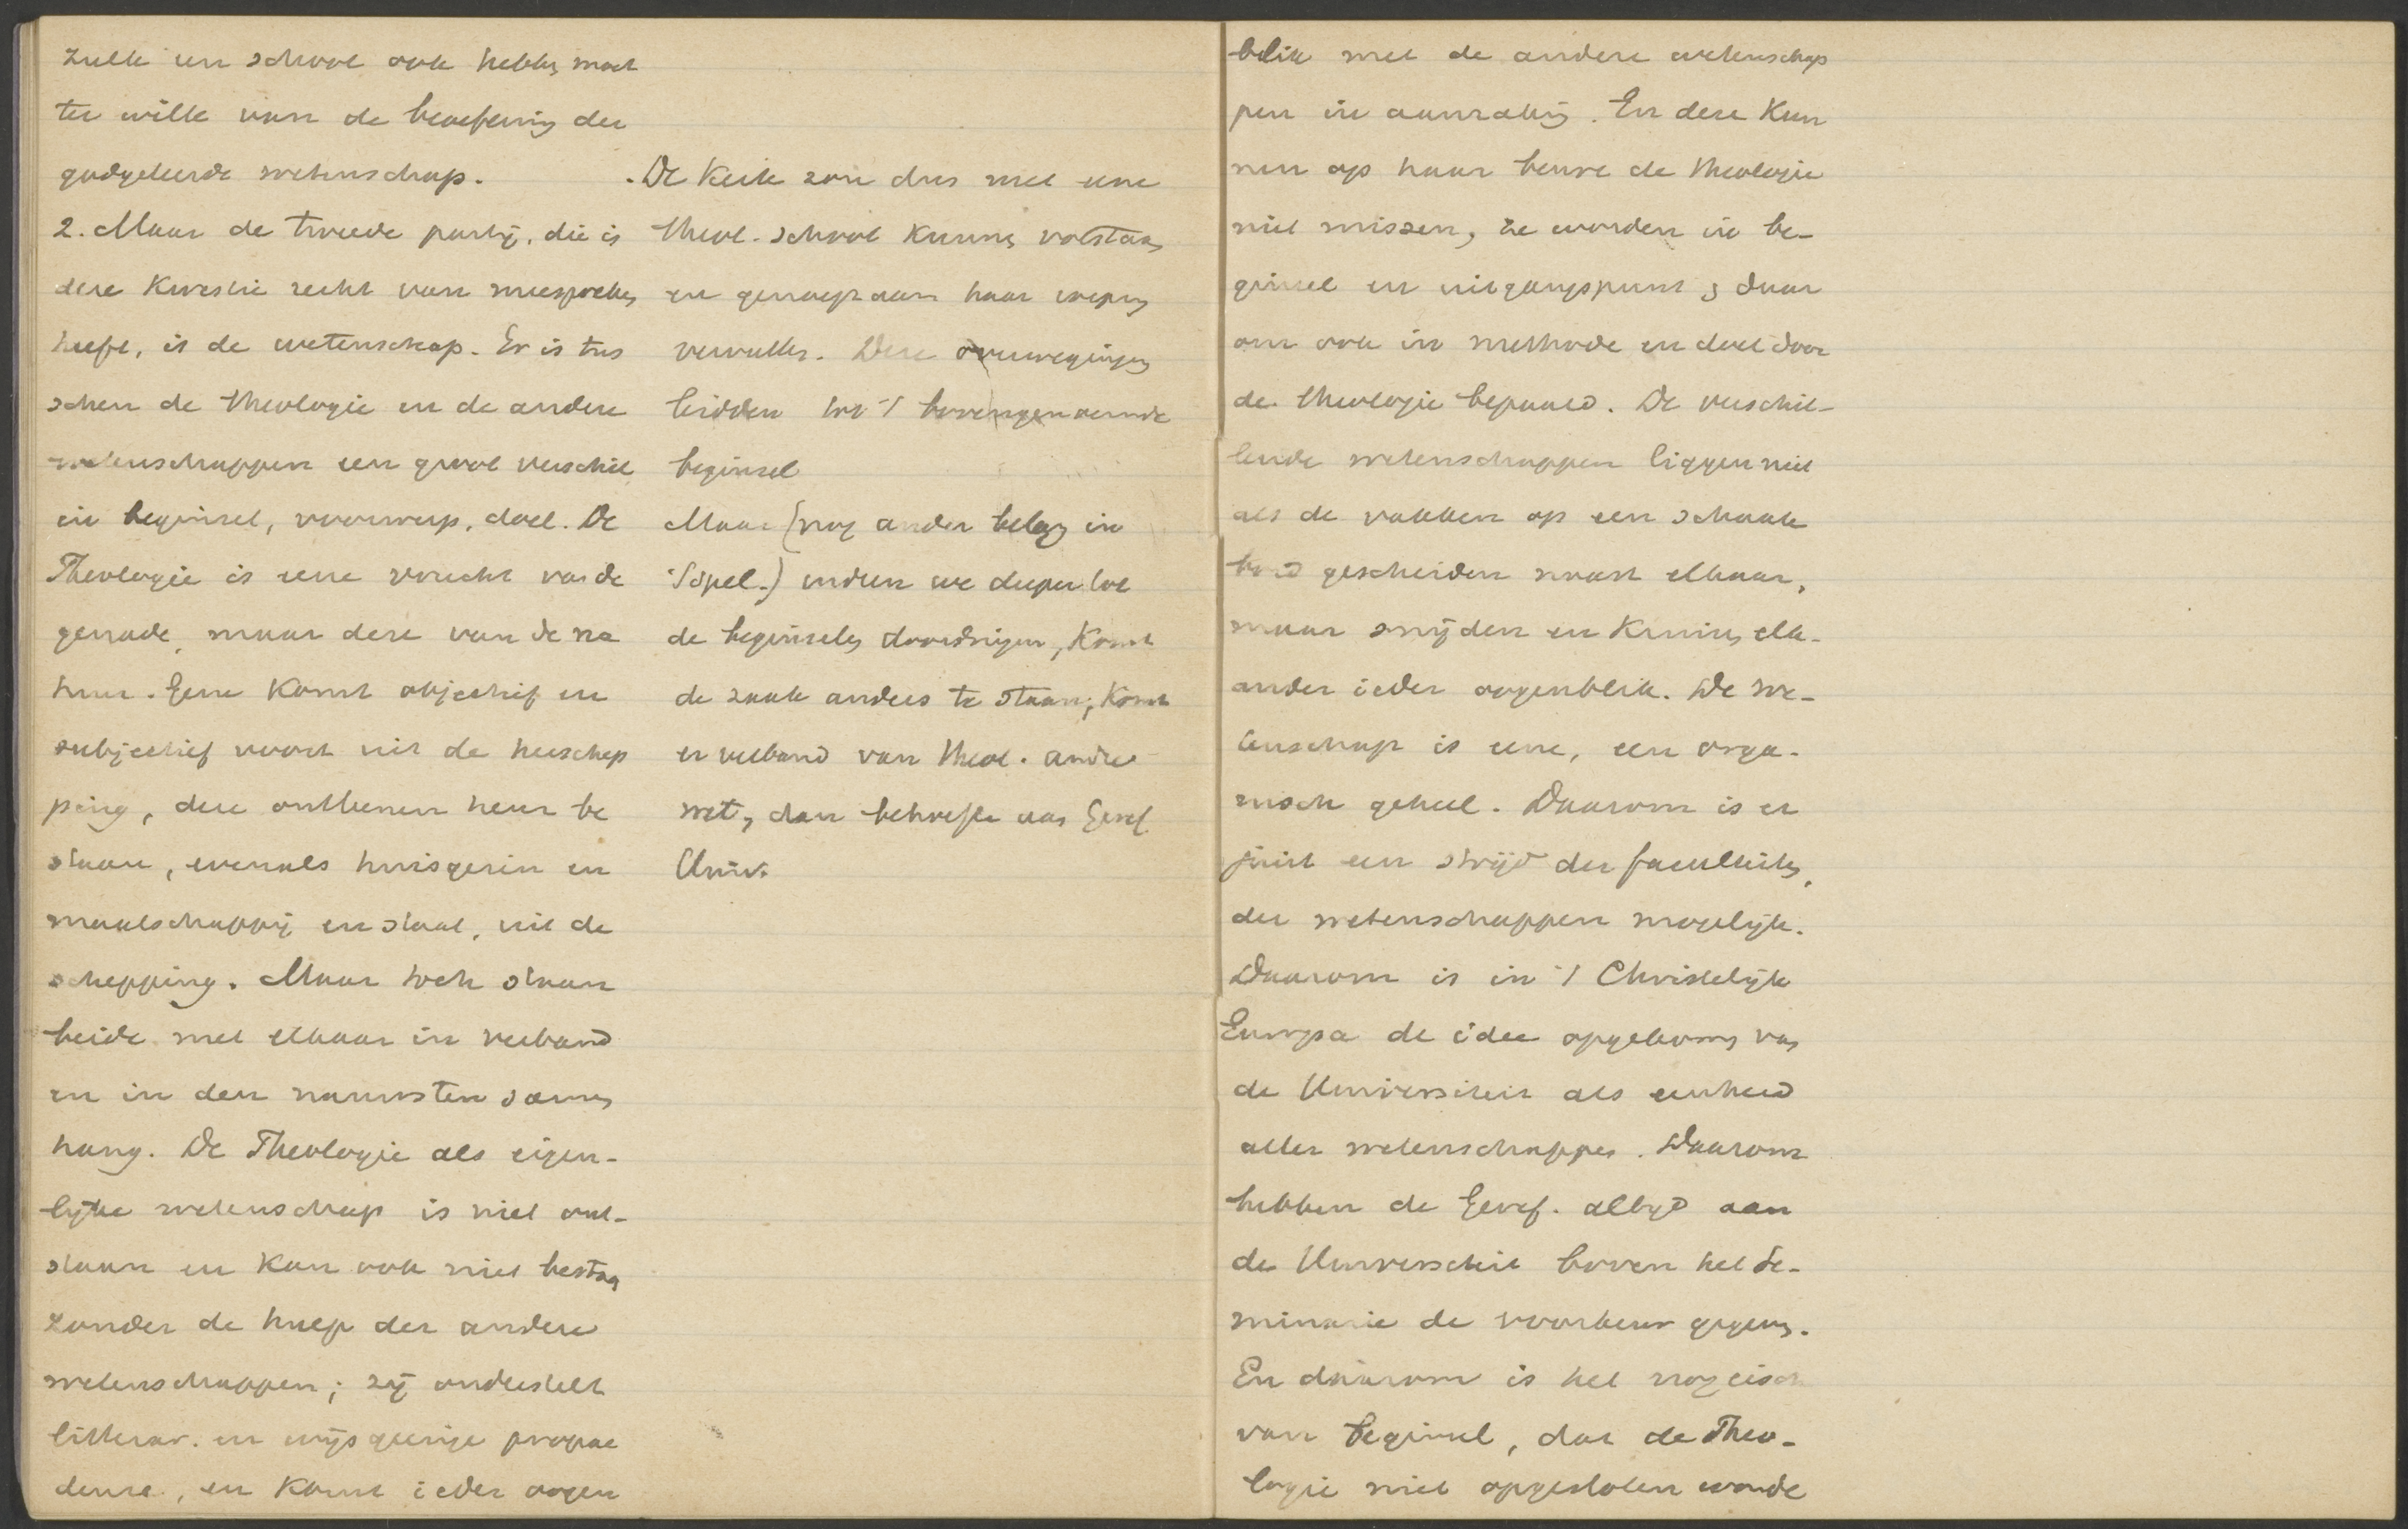 zulk een school ook hebben moet
ter wille van de beoefening der
godgeleerde wetenschap.
2. Maar de tweede partij, die in
deze kwestie recht van meespreken
heeft, is de wetenschap. Er is tus
schen de theologie en de andere
wetenschappen een groot verschil
in beginsel, voorwerp, doel. De
Theologie is eene vrucht van de
genade, maar deze van de na
tuur. Gene komt objectief en
subjectief voort uit de herschep
ping, deze ontleenen heur be
staan, evenals huisgezin en
maatschappij en staat, uit de
schepping. Maar toch staan
beide met elkaar in verband
en in den nauwsten samen
hang. De Theologie als eigen-
lijke wetenschap is niet ont-
staan en kan ook niet bestaan
zonder de hulp der andere
wetenschappen; zij onderstelt
litterar. en wijsgeerige propae
deuse, en komt ieder oogen
. De Kerk zou dus met eene
theol. school kunnen volstaan
en genoegzaam haar roeping
vervullen. Deze overwegingen
leidden tot 't bovengenoemde
beginsel
Maar (nog ander belang in
't spel.) indien we dieper tot
de beginselen doordringen, komt
de zaak anders te staan; komt
er verband van theol. andre
wet, dan behoefte aan Geref.
Univ.
blik met de andere wetenschap
pen in aanraking. En deze kun
nen op haar beurt de theologie
niet missen, ze worden in be-
ginsel en uitgangspunt, daar
om ook in methode en doel door
de theologie bepaald. De verschil-
lende wetenschappen liggen niet
als de vakken op een schaak
bord gescheiden naast elkaar,
maar snijden en kruisen elk-
ander ieder oogenblik. De we-
tenschap is eene, een orga-
nisch geheel. Daarom is er
juist een strijd der faculteiten,
der wetenschappen mogelijk.
Daarom is in 't Christelijk
Europa de idee opgekomen van
de Universiteit als eenheid
aller wetenschappen. Daarom
hebben de Geref. altijd aan
de Universiteit boven het Se-
minarie de voorkeur gegeven.
En daarom is het nog eisch
van beginsel, dat de Theo-
logie niet opgesloten worde